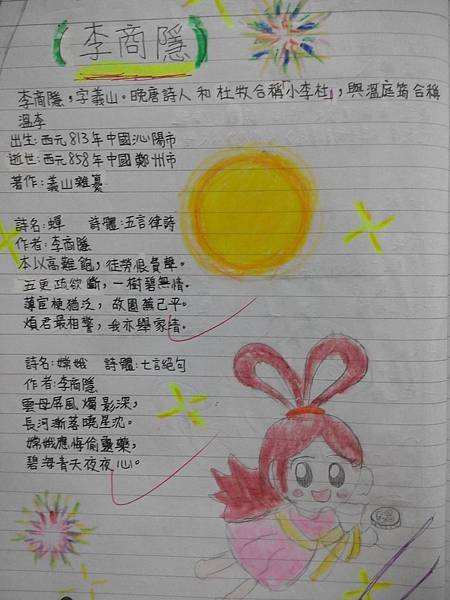 (李商隱)
李商隱,字義山。晚唐詩人和杜牧合稱「小李杜」,與溫庭筠合稱
溫李
出生:西元813年中國沁陽市
逝世:西元858年中國鄭州市
著作:義山雜纂
詩名:蟬 詩體:五言律詩
作者:李商隱
本以高難飽,徒勞恨費聲。
五更疏欲斷,一樹碧無情。
薄宦梗猶泛,故園蕪已平。
煩君最相警,我亦舉家清。
詩名:嫦娥 詩體:七言絕句
作者:李商隱
雲母屏風燭影深,
長河漸落曉星沈。
嫦娥應悔偷靈藥,
碧海青天夜夜心。